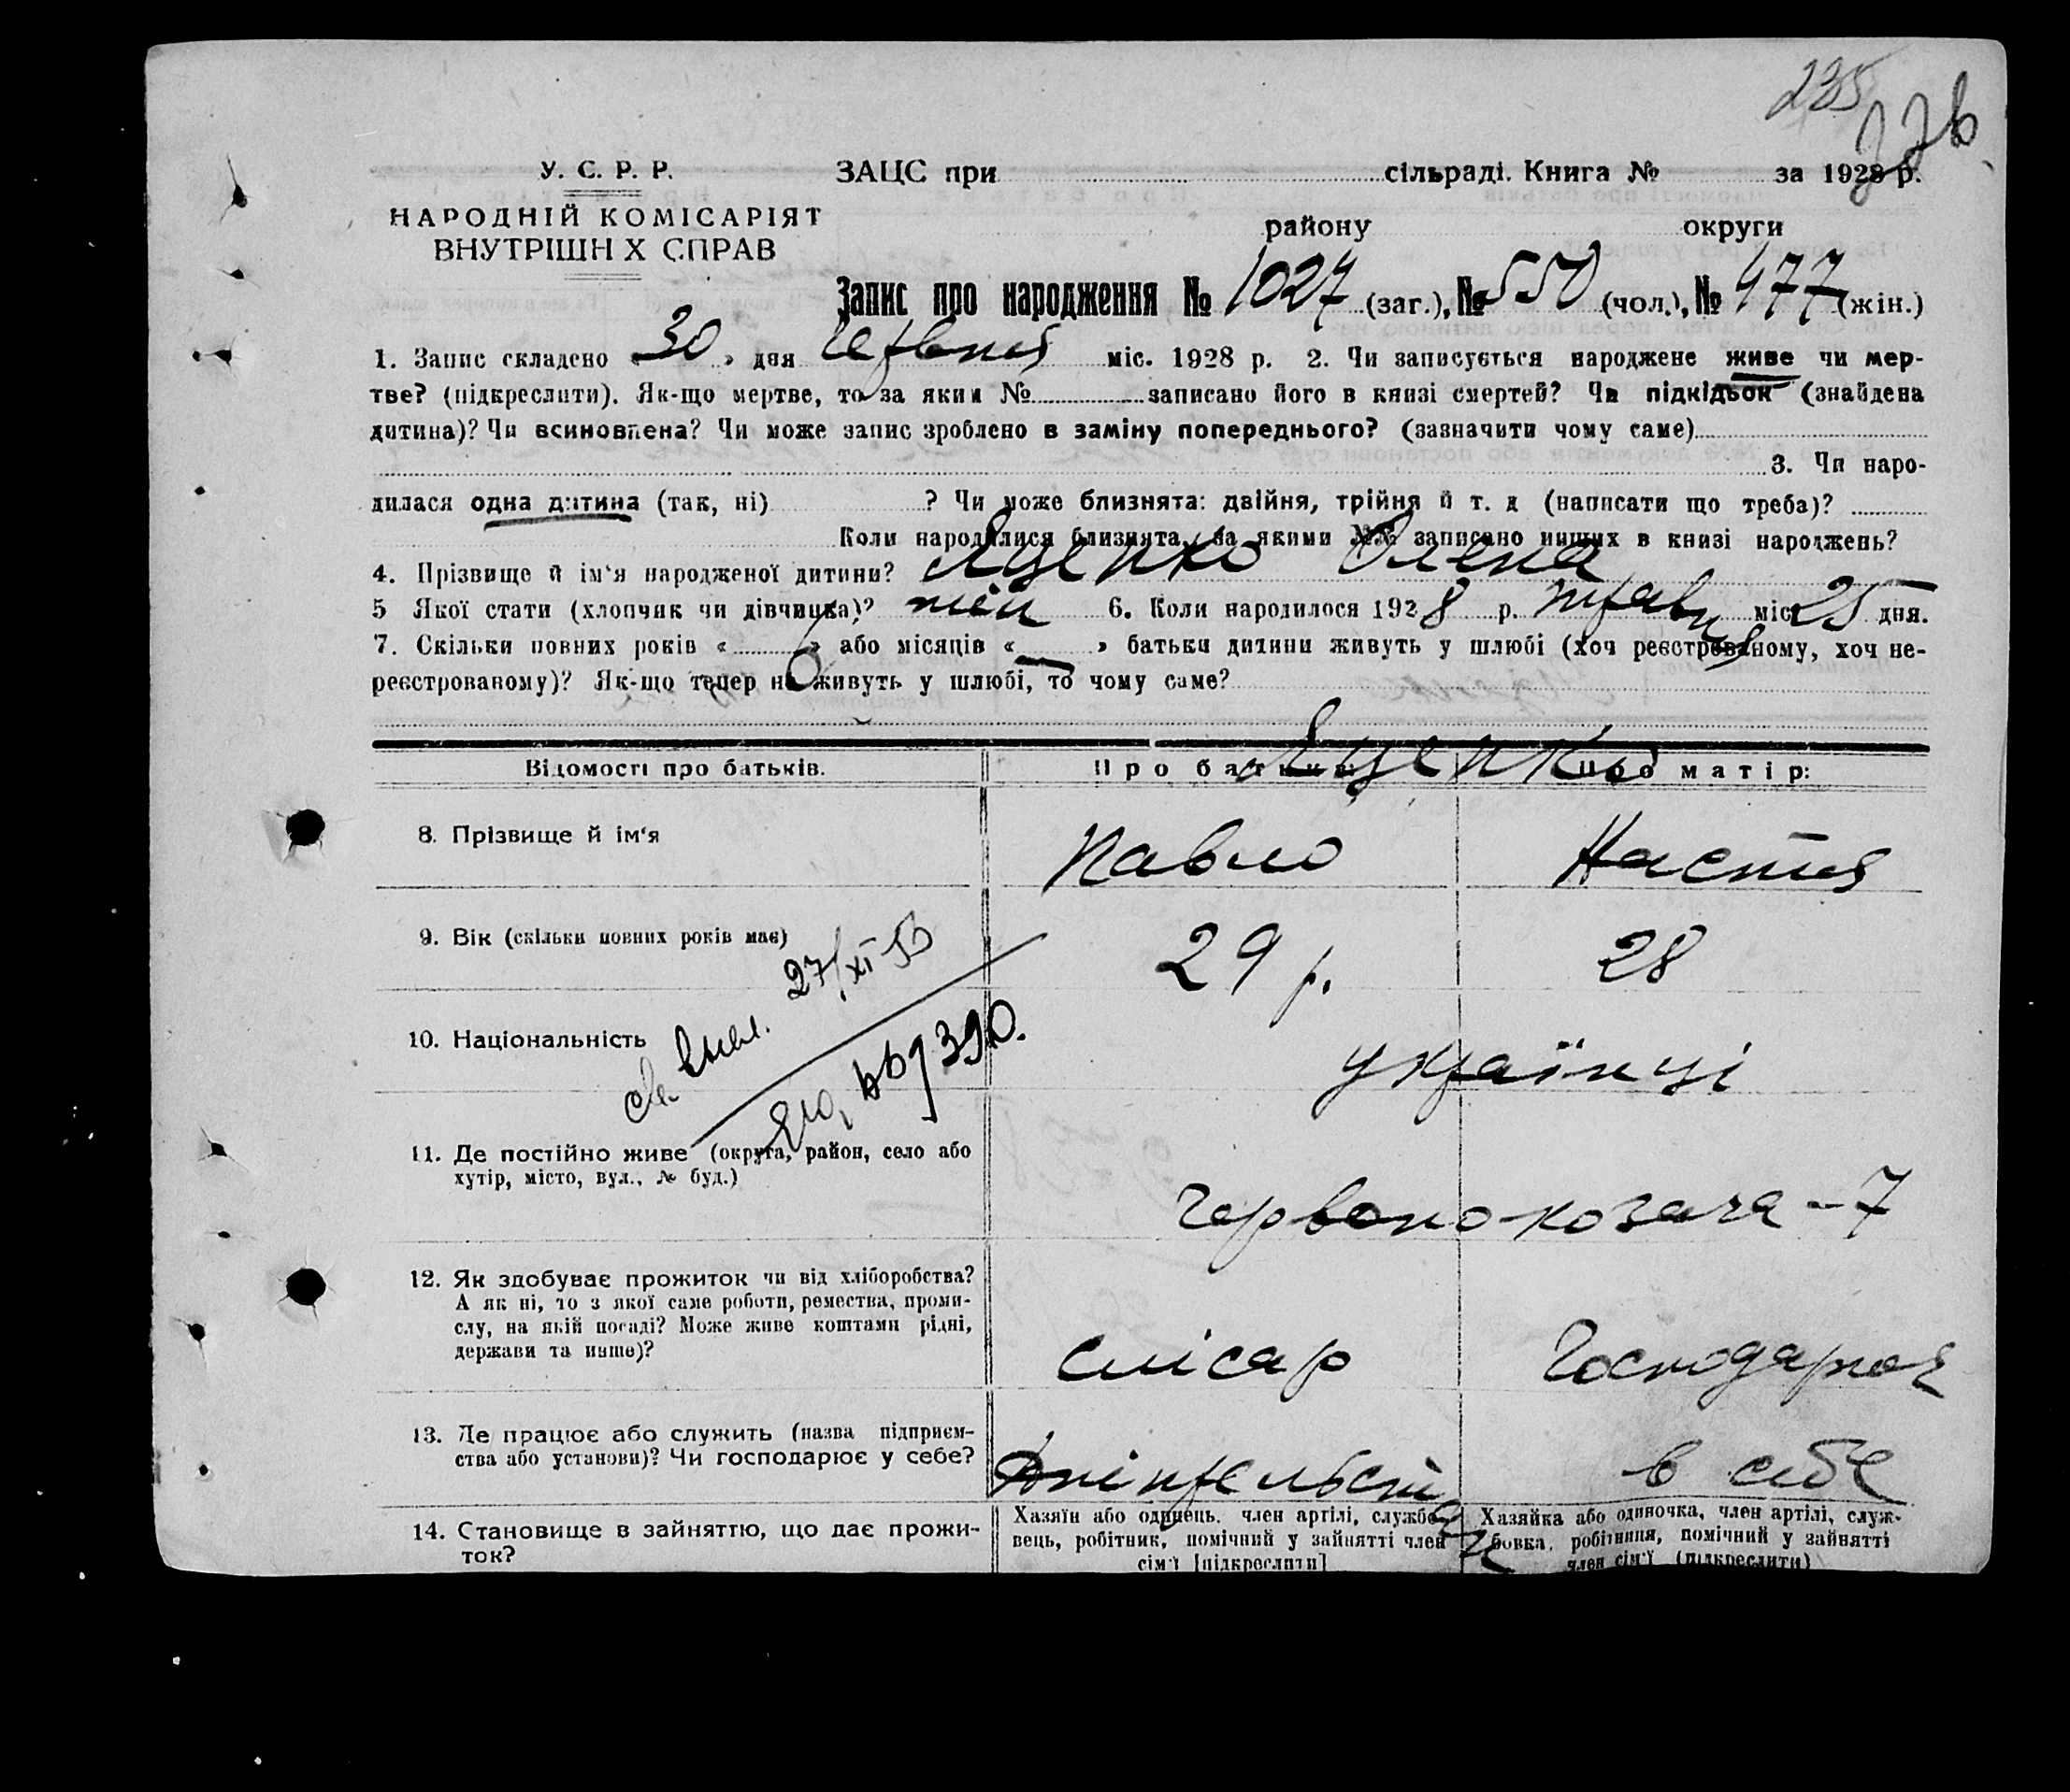 235
У. С. Р. Р.
ЗАЦС при сільраді. Книга № за 1928 р.
НАРОДНІЙ КОМІСАРІЯТ
ВНУТРІШН Х СПРАВ
району округи
Запис про народження № 1027 (заг.), № 550 (чол.), № 477 (жін.)
1. Запис складено « 30 » дня червня міс. 1928 р. 2. Чи записується народжене живе чи мер-
тве? (підкреслити). Як-що мертве, то за яким № записано його в книзі смертей? Чи підкідьок (знайдена
дитина)? Чи всиновлена? Чи може запис зроблено в заміну попереднього? (зазначити чому саме)
3. Чи наро-
дилася одна дитина (так, ні) ? Чи може близнята: двійня, трійня й т. д (написати що треба)?
Коли народилися близнята, за якими №№ записано инших в книзі народжень?
4. Прізвище й ім‘я народженої дитини? Яценко Олена
5 Якої стати (хлопчик чи дівчинка)? жін 6. Коли народилося 1928 р. травня міс 25 дня.
7. Скільки повних років « » або місяців « — » батьки дитини живуть у шлюбі (хоч реєстрованому, хоч не-
реєстрованому)? Як-що тепер не живуть у шлюбі, то чому саме?
Яценко
Відомості про батьків. Про батька: Про матір:
8. Прізвище й ім‘я Павло Настя
9. Вік (скільки повних років має) 29 р. 28
27/XI 53
10. Національність українці
11. Де постійно живе (округа, район, село або
хутір, місто, вул., № буд.)
Червонокозача - 7
12. Як здобуває прожиток чи від хліборобства?
А як ні, то з якої саме роботи, ремества, проми-
слу, на якій посаді? Може живе коштами рідні,
держави та инше)?
слюсар Господарня
13. Де працює або служить (назва підприєм-
ства або установи)? Чи господарює у себе?
в себе
14. Становище в зайняттю, що дає прожи-
ток?
Хазяїн або одинець, член артілі, службо-
вець, робітник, помічний у зайнятті член
сім‘ї [підкреслити]
Хазяйка або одиночка, член артілі, служ-
бовка, робітниця, помічний у зайнятті
член сім‘ї (підкреслити)